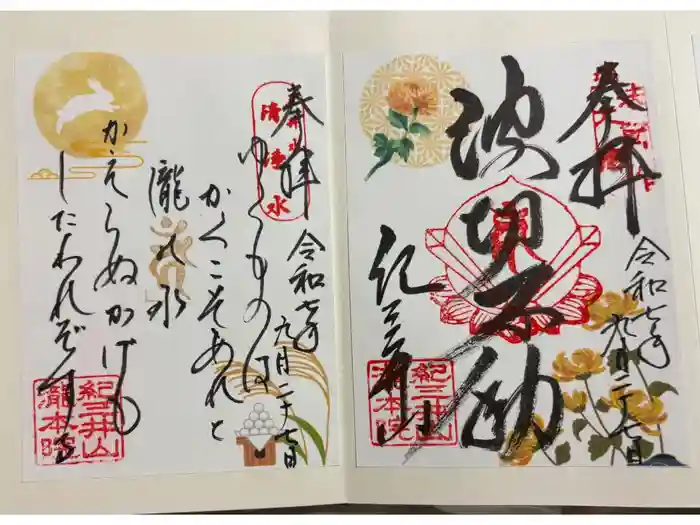 奉拝
令和七年
九月二十七日
波切不動
紀三井山
紀三井山
瀧本院
奉拝
清浄水
令和七年
九月二十七日
ゆくものは
かくこそあれと
瀧の水
かえらぬかげも
したわれぞす
紀三井山
瀧本院